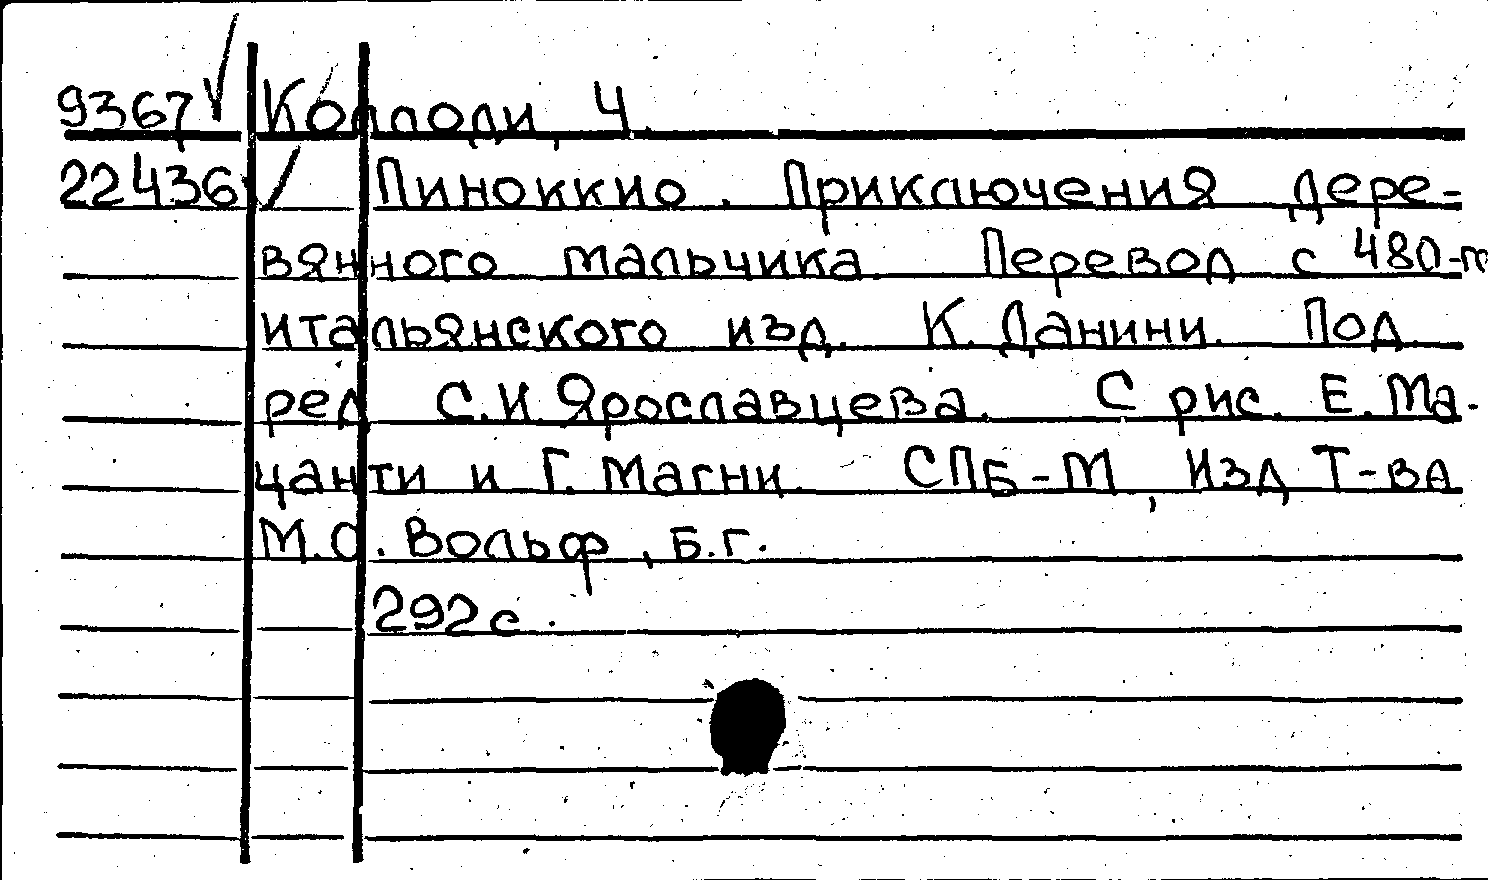 9367 Коллоди, Ч.
22436 Пиноккио. Приключения дере-
вянного мальчика. Перевод с 480-го
итальянского изд. К. Данини. Под
ред. С.И. Ярославцева. С рис. Е. Ма-
цанти и Г. Магни. СПБ-М, Изд Т-ва
М.О. Вольф, Б.г.
292 с.